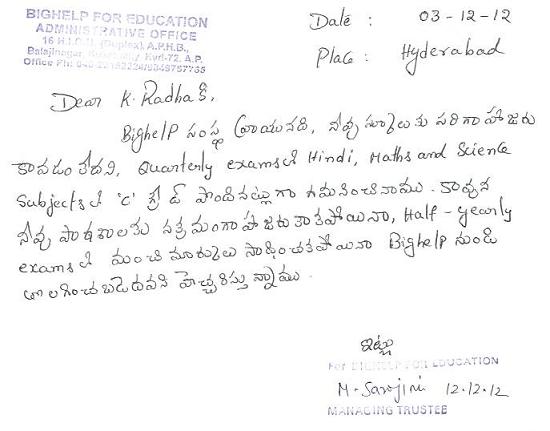 BIGHELP FOR EDUCATION
ADMINISTRATIVE OFFICE
16 H.I.G.II (Duplex), A.P.H.B.,
Date : 03-12-12
Place : Hyderabad
Dear K. Radha కి,
Bighelp సంస్థ వ్రాయునది, నీవు స్కూలుకు సరిగా హాజరు
కావడం లేదని, Quarterly exams లో Hindi, Maths and Science
Subjects లో 'C' గ్రేడ్ పొందినట్లుగా గమనించినాము. కావున
నీవు పాఠశాలకు సక్రమంగా హాజరుకాకపోయినా, Half-yearly
exams లో మంచి మార్కులు సాధించకపోయినా Bighelp నుండి
తొలగించబడెదవని హెచ్చరిస్తున్నాము.
ఇట్లు
For BIGHELP FOR EDUCATION
M. Sarojini 12.12.12
MANAGING TRUSTEE